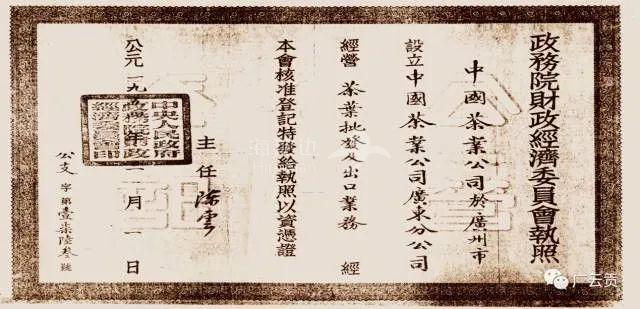 政務院財政經濟委員會執照
中國茶業公司於廣州市
設立中國茶業公司廣東分公司
經營茶葉批發及出口業務 經
本會核准登記特發給執照以資憑證
主任 陳雲
公元一九 月一日
中央人民政府
政務院財政
經濟委員會印
公支字第壹柒陸叁號
广云贡